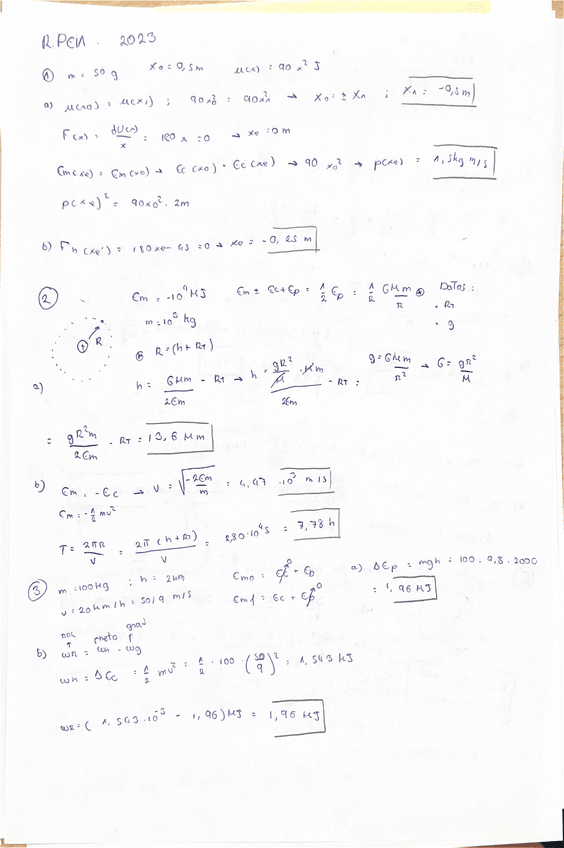 R.PEN. 2023
① m = 50 g    x0 = 0,5m    µ(x) = 90x² J
a) µ(x0) = µ(x1) ; 90x0² = 90x1² → x0 = ± x1 ; x1 = -0,5m
F(x) = dU(x)/x = 180x = 0 → xe = 0 m
Em(xe) = Em(x0) → Ec(x0) = Ec(xe) → 90 x0² → p(xe) = 1,5kg m/s
p(xe)² = 90x0² · 2m
b) Fn(xe') = 180xe - 45 = 0 → xe = -0,25 m
② Em = -10⁴ MJ    Em = Ec+Ep = 1/2 Ep = 1/2 GMm/R    Datos:
m = 10³ kg    · RT
R    R = (h + RT)    · g
a) h = GMm/2Em - RT → h = gR²/M · Mm/2Em - RT =    g = GMm/R² → G = gR²/M
= gR²m/2Em - RT = 13,6 Mm
b) Em = -Ec → v = √-2Em/m = 4,47 · 10³ m/s
Em = -1/2 mv²
T = 2πR/v = 2π(h+RT)/v = 2,80·10⁴s = 7,78 h
③ m = 100kg ; h = 2km    Em0 = Ec⁰ + Ep    a) ΔEp = mgh = 100 · 9,8 · 2000
v = 20km/h = 50/9 m/s    Emf = Ec + Ep⁰    = 1,96 MJ
roz    grav
b) WR = Wn - Wg
Wn = ΔEc = 1/2 mv² = 1/2 · 100 · (50/9)² = 1,543 kJ
WR = (1,543·10⁻³ - 1,96) MJ = 1,96 MJ